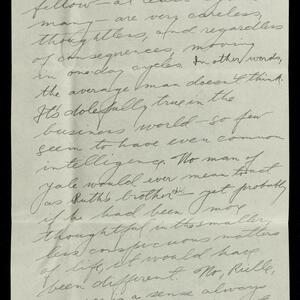 fellow – at least
many – are very careless,
thoughtless, and regardless
of consequences, moving
in one day cycles. In other words,
the average man doesn't think.
It's dolefully true in the
business world – so few
seem to have even common
intelligence. No man of
Yale would ever mean to act
as Ruth's brother – yet probably
if he had been more
thoughtful in the smaller
less conspicuous matters
of life, it would have
been different. No,
is a sense always